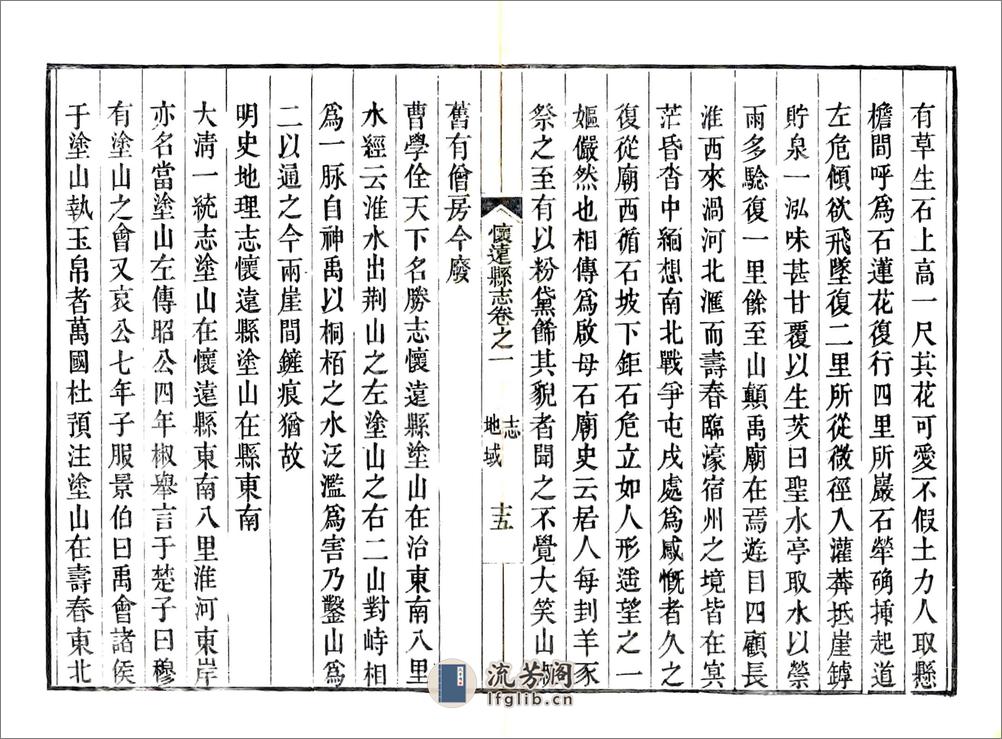 有草生石上高一尺其花可愛不假土力人取懸
檐間呼爲石蓮花復行四里所巖石犖确揷起道
左危傾欲飛墜復二里所從微徑入灌莽抵崖罅
貯泉一泓味甚甘覆以生茨曰聖水亭取水以禜
雨多騐復一里餘至山顛禹廟在焉遊目四顧長
淮西來渦河北滙而壽春臨濠宿州之境皆在㝠
茫昏杳中緬想南北戰爭屯戍處爲感慨者久之
復從廟西循石坡下鉅石危立如人形遥望之一
嫗儼然也相傳爲啟母石廟史云居人每刲羊豕
祭之至有以粉黛餙其貌者聞之不覺大笑山
懷遠縣志卷之一
地域
志
十五
舊有僧房今廢
曹學佺天下名勝志懷遠縣塗山在治東南八里
水經云淮水出荆山之左塗山之右二山對峙相
爲一脉自神禹以桐栢之水泛濫爲害乃鑿山爲
二以通之今兩崖間鏟痕猶故
明史地理志懷遠縣塗山在縣東南
大淸一統志塗山在懷遠縣東南八里淮河東岸
亦名當塗山左傳昭公四年椒舉言于楚子曰穆
有塗山之會又哀公七年子服景伯曰禹會諸侯
于塗山執玉帛者萬國杜預注塗山在壽春東北
流芳閣
lfglib.cn